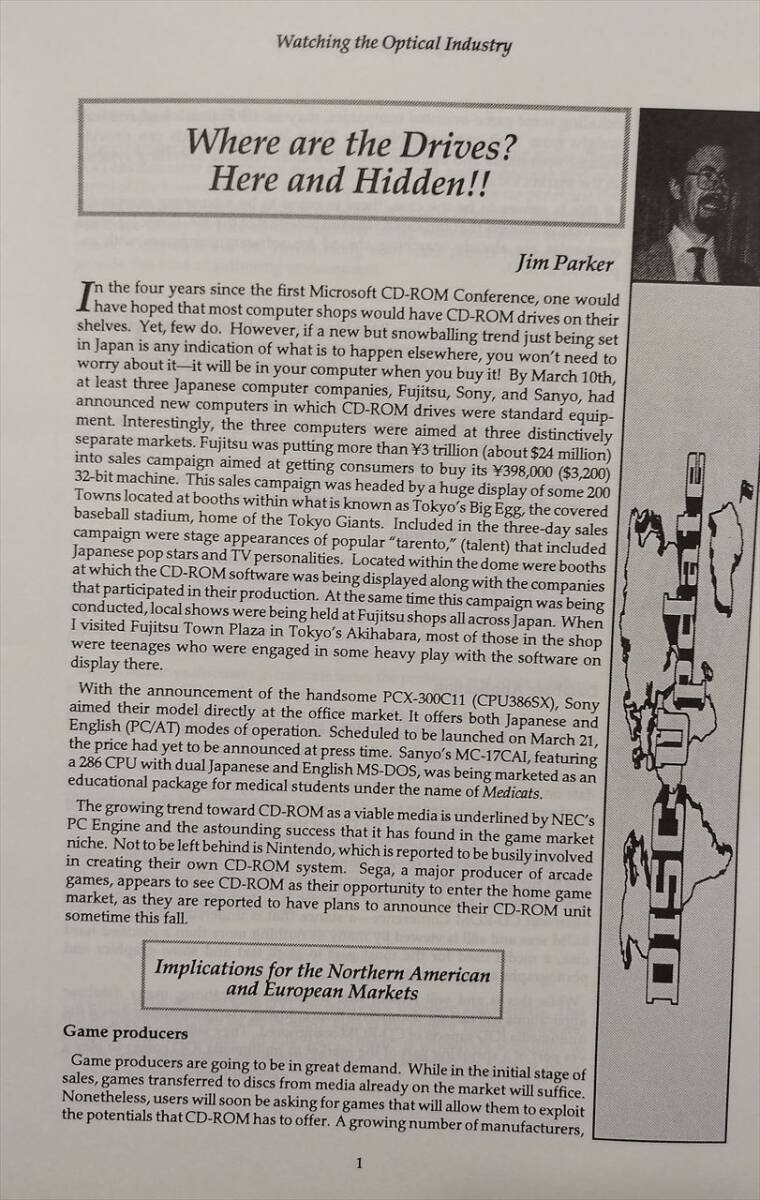 Watching the Optical Industry
Where are the Drives?
Here and Hidden!!
Jim Parker
In the four years since the first Microsoft CD-ROM Conference, one would
have hoped that most computer shops would have CD-ROM drives on their
shelves. Yet, few do. However, if a new but snowballing trend just being set
in Japan is any indication of what is to happen elsewhere, you won't need to
worry about it—it will be in your computer when you buy it! By March 10th,
at least three Japanese computer companies, Fujitsu, Sony, and Sanyo, had
announced new computers in which CD-ROM drives were standard equip-
ment. Interestingly, the three computers were aimed at three distinctively
separate markets. Fujitsu was putting more than ¥3 trillion (about $24 million)
into sales campaign aimed at getting consumers to buy its ¥398,000 ($3,200)
32-bit machine. This sales campaign was headed by a huge display of some 200
Towns located at booths within what is known as Tokyo's Big Egg, the covered
baseball stadium, home of the Tokyo Giants. Included in the three-day sales
campaign were stage appearances of popular "tarento," (talent) that included
Japanese pop stars and TV personalities. Located within the dome were booths
at which the CD-ROM software was being displayed along with the companies
that participated in their production. At the same time this campaign was being
conducted, local shows were being held at Fujitsu shops all across Japan. When
I visited Fujitsu Town Plaza in Tokyo's Akihabara, most of those in the shop
were teenages who were engaged in some heavy play with the software on
display there.
With the announcement of the handsome PCX-300C11 (CPU386SX), Sony
aimed their model directly at the office market. It offers both Japanese and
English (PC/AT) modes of operation. Scheduled to be launched on March 21,
the price had yet to be announced at press time. Sanyo's MC-17CAI, featuring
a 286 CPU with dual Japanese and English MS-DOS, was being marketed as an
educational package for medical students under the name of Medicats.
The growing trend toward CD-ROM as a viable media is underlined by NEC's
PC Engine and the astounding success that it has found in the game market
niche. Not to be left behind is Nintendo, which is reported to be busily involved
in creating their own CD-ROM system. Sega, a major producer of arcade
games, appears to see CD-ROM as their opportunity to enter the home game
market, as they are reported to have plans to announce their CD-ROM unit
sometime this fall.
Implications for the Northern American
and European Markets
Game producers
Game producers are going to be in great demand. While in the initial stage of
sales, games transferred to discs from media already on the market will suffice.
Nonetheless, users will soon be asking for games that will allow them to exploit
the potentials that CD-ROM has to offer. A growing number of manufacturers,
1